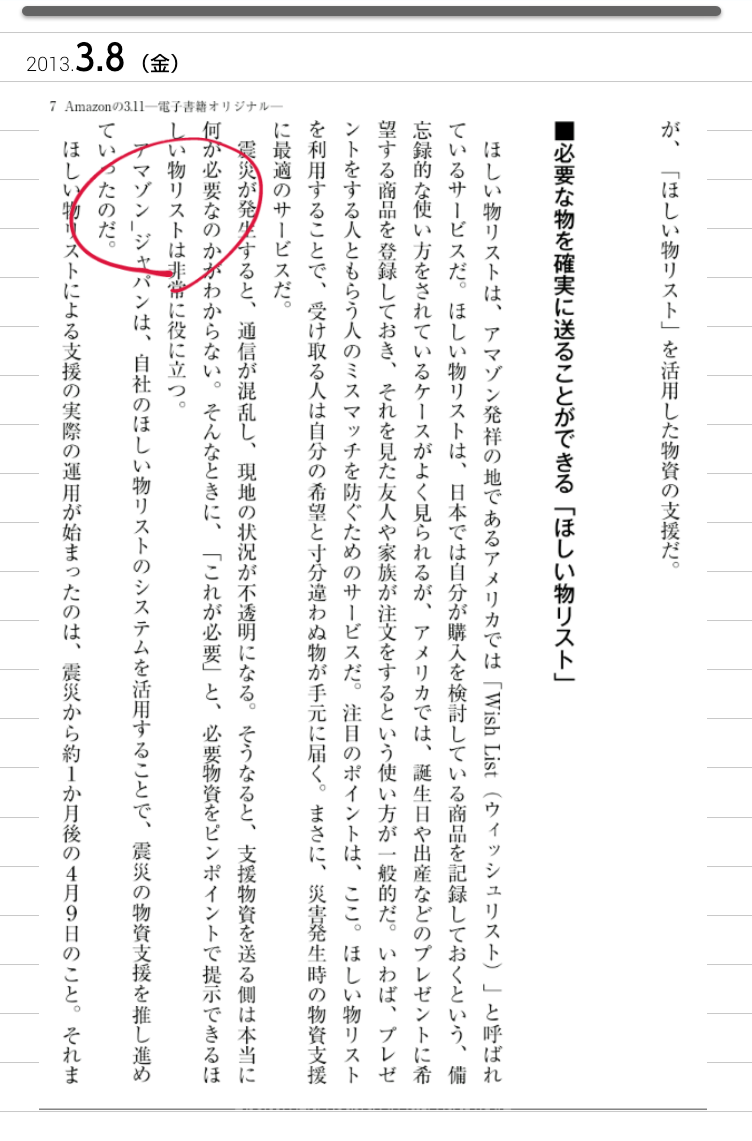 2013.3.8（金）
7 Amazonの3.11―電子書籍オリジナル―
が、「ほしい物リスト」を活用した物資の支援だ。
■必要な物を確実に送ることができる「ほしい物リスト」
ほしい物リストは、アマゾン発祥の地であるアメリカでは「Wish List（ウィッシュリスト）」と呼ばれ
ているサービスだ。ほしい物リストは、日本では自分が購入を検討している商品を記録しておくという、備
忘録的な使い方をされているケースがよく見られるが、アメリカでは、誕生日や出産などのプレゼントに希
望する商品を登録しておき、それを見た友人や家族が注文をするという使い方が一般的だ。いわば、プレゼ
ントをする人ともらう人のミスマッチを防ぐためのサービスだ。注目のポイントは、ここ。ほしい物リスト
を利用することで、受け取る人は自分の希望と寸分違わぬ物が手元に届く。まさに、災害発生時の物資支援
に最適のサービスだ。
震災が発生すると、通信が混乱し、現地の状況が不透明になる。そうなると、支援物資を送る側は本当に
何が必要なのかがわからない。そんなときに、「これが必要」と、必要物資をピンポイントで提示できるほ
しい物リストは非常に役に立つ。
アマゾン」ジャパンは、自社のほしい物リストのシステムを活用することで、震災の物資支援を推し進め
ていったのだ。
ほしい物リストによる支援の実際の運用が始まったのは、震災から約1か月後の4月9日のこと。それま